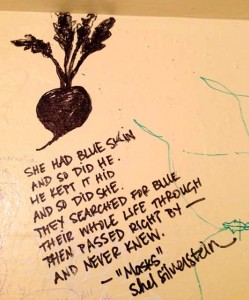 SHE HAD BLUE SKIN
AND SO DID HE.
HE KEPT IT HID
AND SO DID SHE.
THEY SEARCHED FOR BLUE
THEIR WHOLE LIFE THROUGH
THEN PASSED RIGHT BY —
AND NEVER KNEW.
— "Masks"
Shel Silverstein